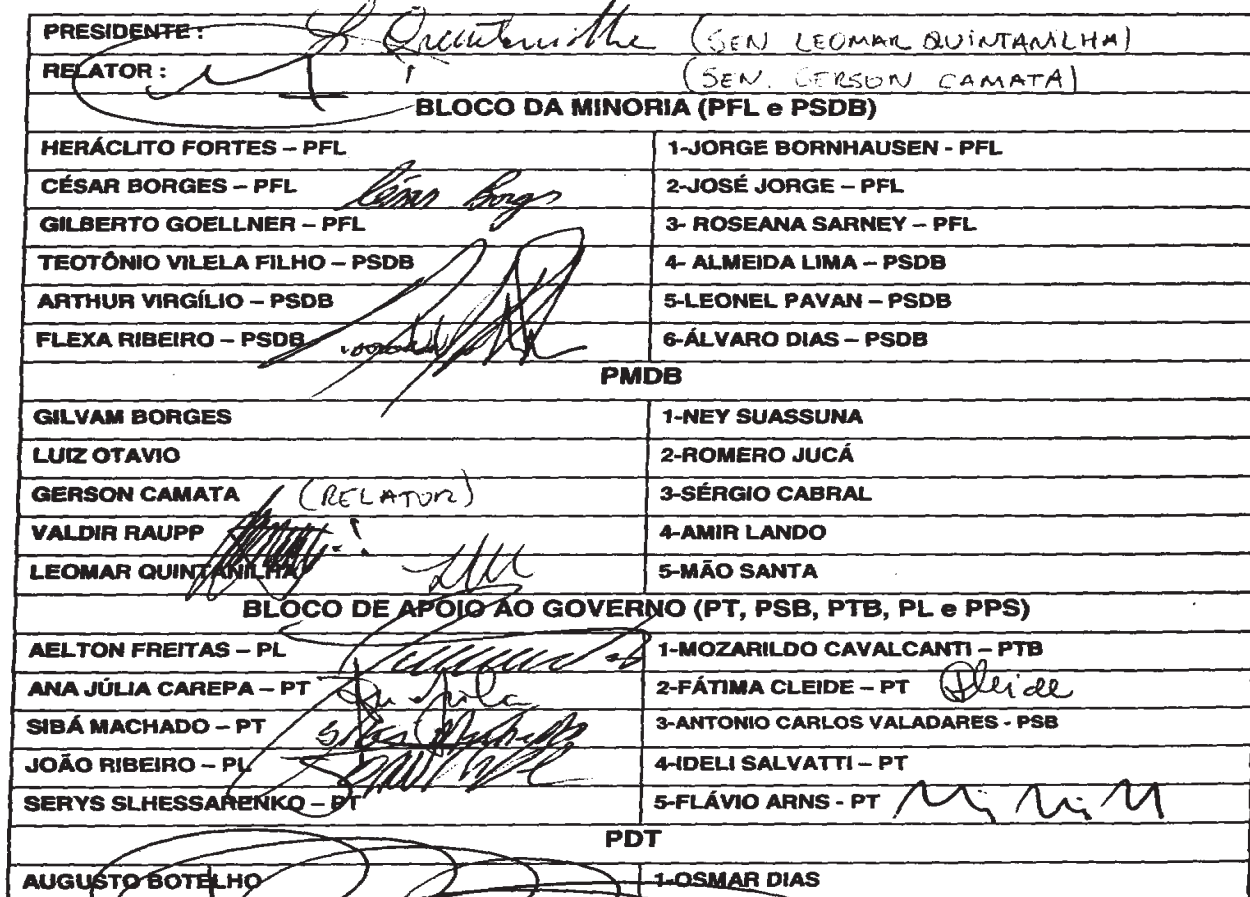 PRESIDENTE : (SEN LEOMAR QUINTANILHA)
RELATOR : (SEN. GERSON CAMATA)
BLOCO DA MINORIA (PFL e PSDB)
HERÁCLITO FORTES – PFL 1-JORGE BORNHAUSEN - PFL
CÉSAR BORGES – PFL César Borges 2-JOSÉ JORGE – PFL
GILBERTO GOELLNER – PFL 3- ROSEANA SARNEY – PFL
TEOTÔNIO VILELA FILHO – PSDB 4- ALMEIDA LIMA – PSDB
ARTHUR VIRGÍLIO – PSDB 5-LEONEL PAVAN – PSDB
FLEXA RIBEIRO – PSDB 6-ÁLVARO DIAS – PSDB
PMDB
GILVAM BORGES 1-NEY SUASSUNA
LUIZ OTAVIO 2-ROMERO JUCÁ
GERSON CAMATA (RELATOR) 3-SÉRGIO CABRAL
VALDIR RAUPP 4-AMIR LANDO
LEOMAR QUINTANILHA 5-MÃO SANTA
BLOCO DE APOIO AO GOVERNO (PT, PSB, PTB, PL e PPS)
AELTON FREITAS – PL 1-MOZARILDO CAVALCANTI – PTB
ANA JÚLIA CAREPA – PT 2-FÁTIMA CLEIDE – PT Cleide
SIBÁ MACHADO – PT 3-ANTONIO CARLOS VALADARES - PSB
JOÃO RIBEIRO – PL 4-IDELI SALVATTI – PT
SERYS SLHESSARENKO – PT 5-FLÁVIO ARNS - PT
PDT
AUGUSTO BOTELHO 1-OSMAR DIAS